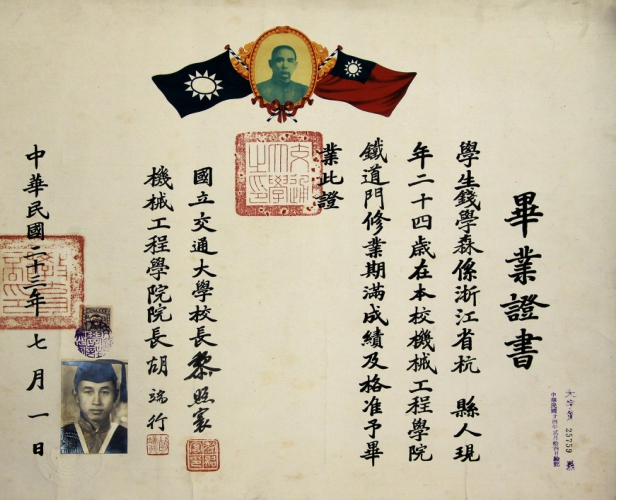 畢業證書
學生錢學森係浙江省杭 縣人現
年二十四歲在本校機械工程學院
鐵道門修業期滿成績及格准予畢
業此證
國立交通大學校長黎照寰
機械工程學院院長胡端行
中華民國二十三年七月一日
25759